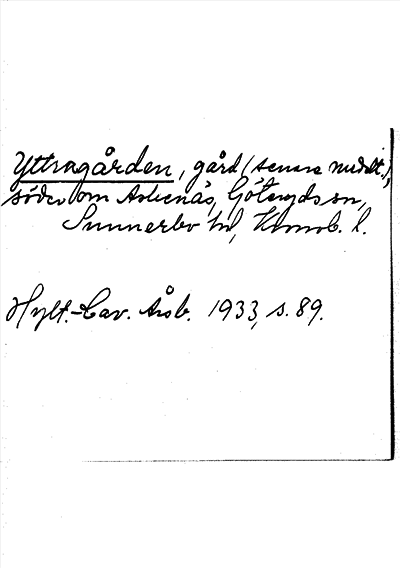 Yttragården, gård (senare meddt.),
söder om Askenäs, Göteryds sn,
Sunnerbo hd, Kronob. l.
Hylt.-Cav. Årsb. 1933, s. 89.